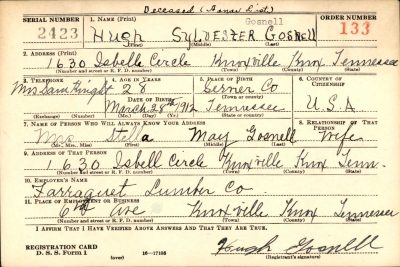 Deceased (Bonar Dist.)
SERIAL NUMBER 1. NAME (Print) Gosnell ORDER NUMBER
2423 HUGH SYLVESTER GOSNELL 133
(First) (Middle) (Last)
2. ADDRESS (Print)
1630 Isbelle Circle Knoxville Knox Tennessee
(Number and street or R. F. D. number) (Town) (County) (State)
3. TELEPHONE 4. AGE IN YEARS 5. PLACE OF BIRTH 6. COUNTRY OF CITIZENSHIP
Mrs Sam Knight 28 Servier Co
DATE OF BIRTH (Town or county)
March 28th 1912 Tennessee U.S.A
(Exchange) (Number) (Mo.) (Day) (Yr.) (State or country)
7. NAME OF PERSON WHO WILL ALWAYS KNOW YOUR ADDRESS 8. RELATIONSHIP OF THAT PERSON
Mrs Stella May Gosnell Wife
(Mr., Mrs., Miss) (First) (Middle) (Last)
9. ADDRESS OF THAT PERSON
1630 Isbell Circle Knoxville Knox Tenn.
(Number and street or R. F. D. number) (Town) (County) (State)
10. EMPLOYER'S NAME
Farraguet Lumber Co
11. PLACE OF EMPLOYMENT OR BUSINESS
6th Ave Knoxville Knox Tennessee
(Number and street or R. F. D. number) (Town) (County) (State)
I AFFIRM THAT I HAVE VERIFIED ABOVE ANSWERS AND THAT THEY ARE TRUE.
REGISTRATION CARD
D. S. S. Form 1 (over) 16—17105 Hugh Gosnell
(Registrant's signature)